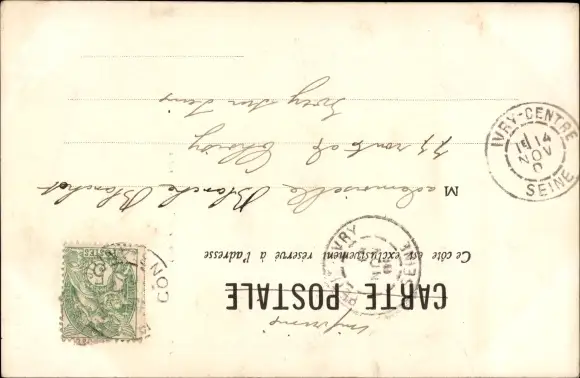 imprimé
CARTE POSTALE
Ce côté est exclusivement réservé à l'adresse
Mademoiselle Blanche Blanchet
77 route de Choisy
Ivry sur Seine
IVRY-CENTRE
14
NOV
0
SEINE
IVRY
SEINE
POSTES
CON